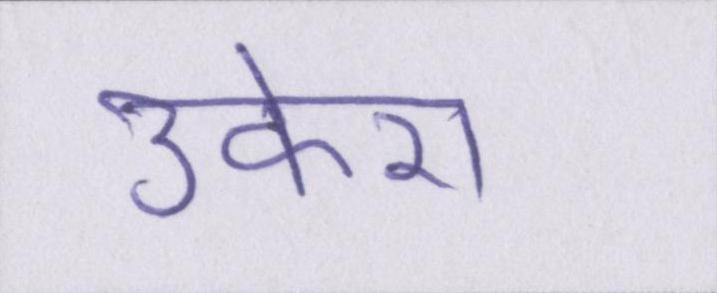 उकेरा